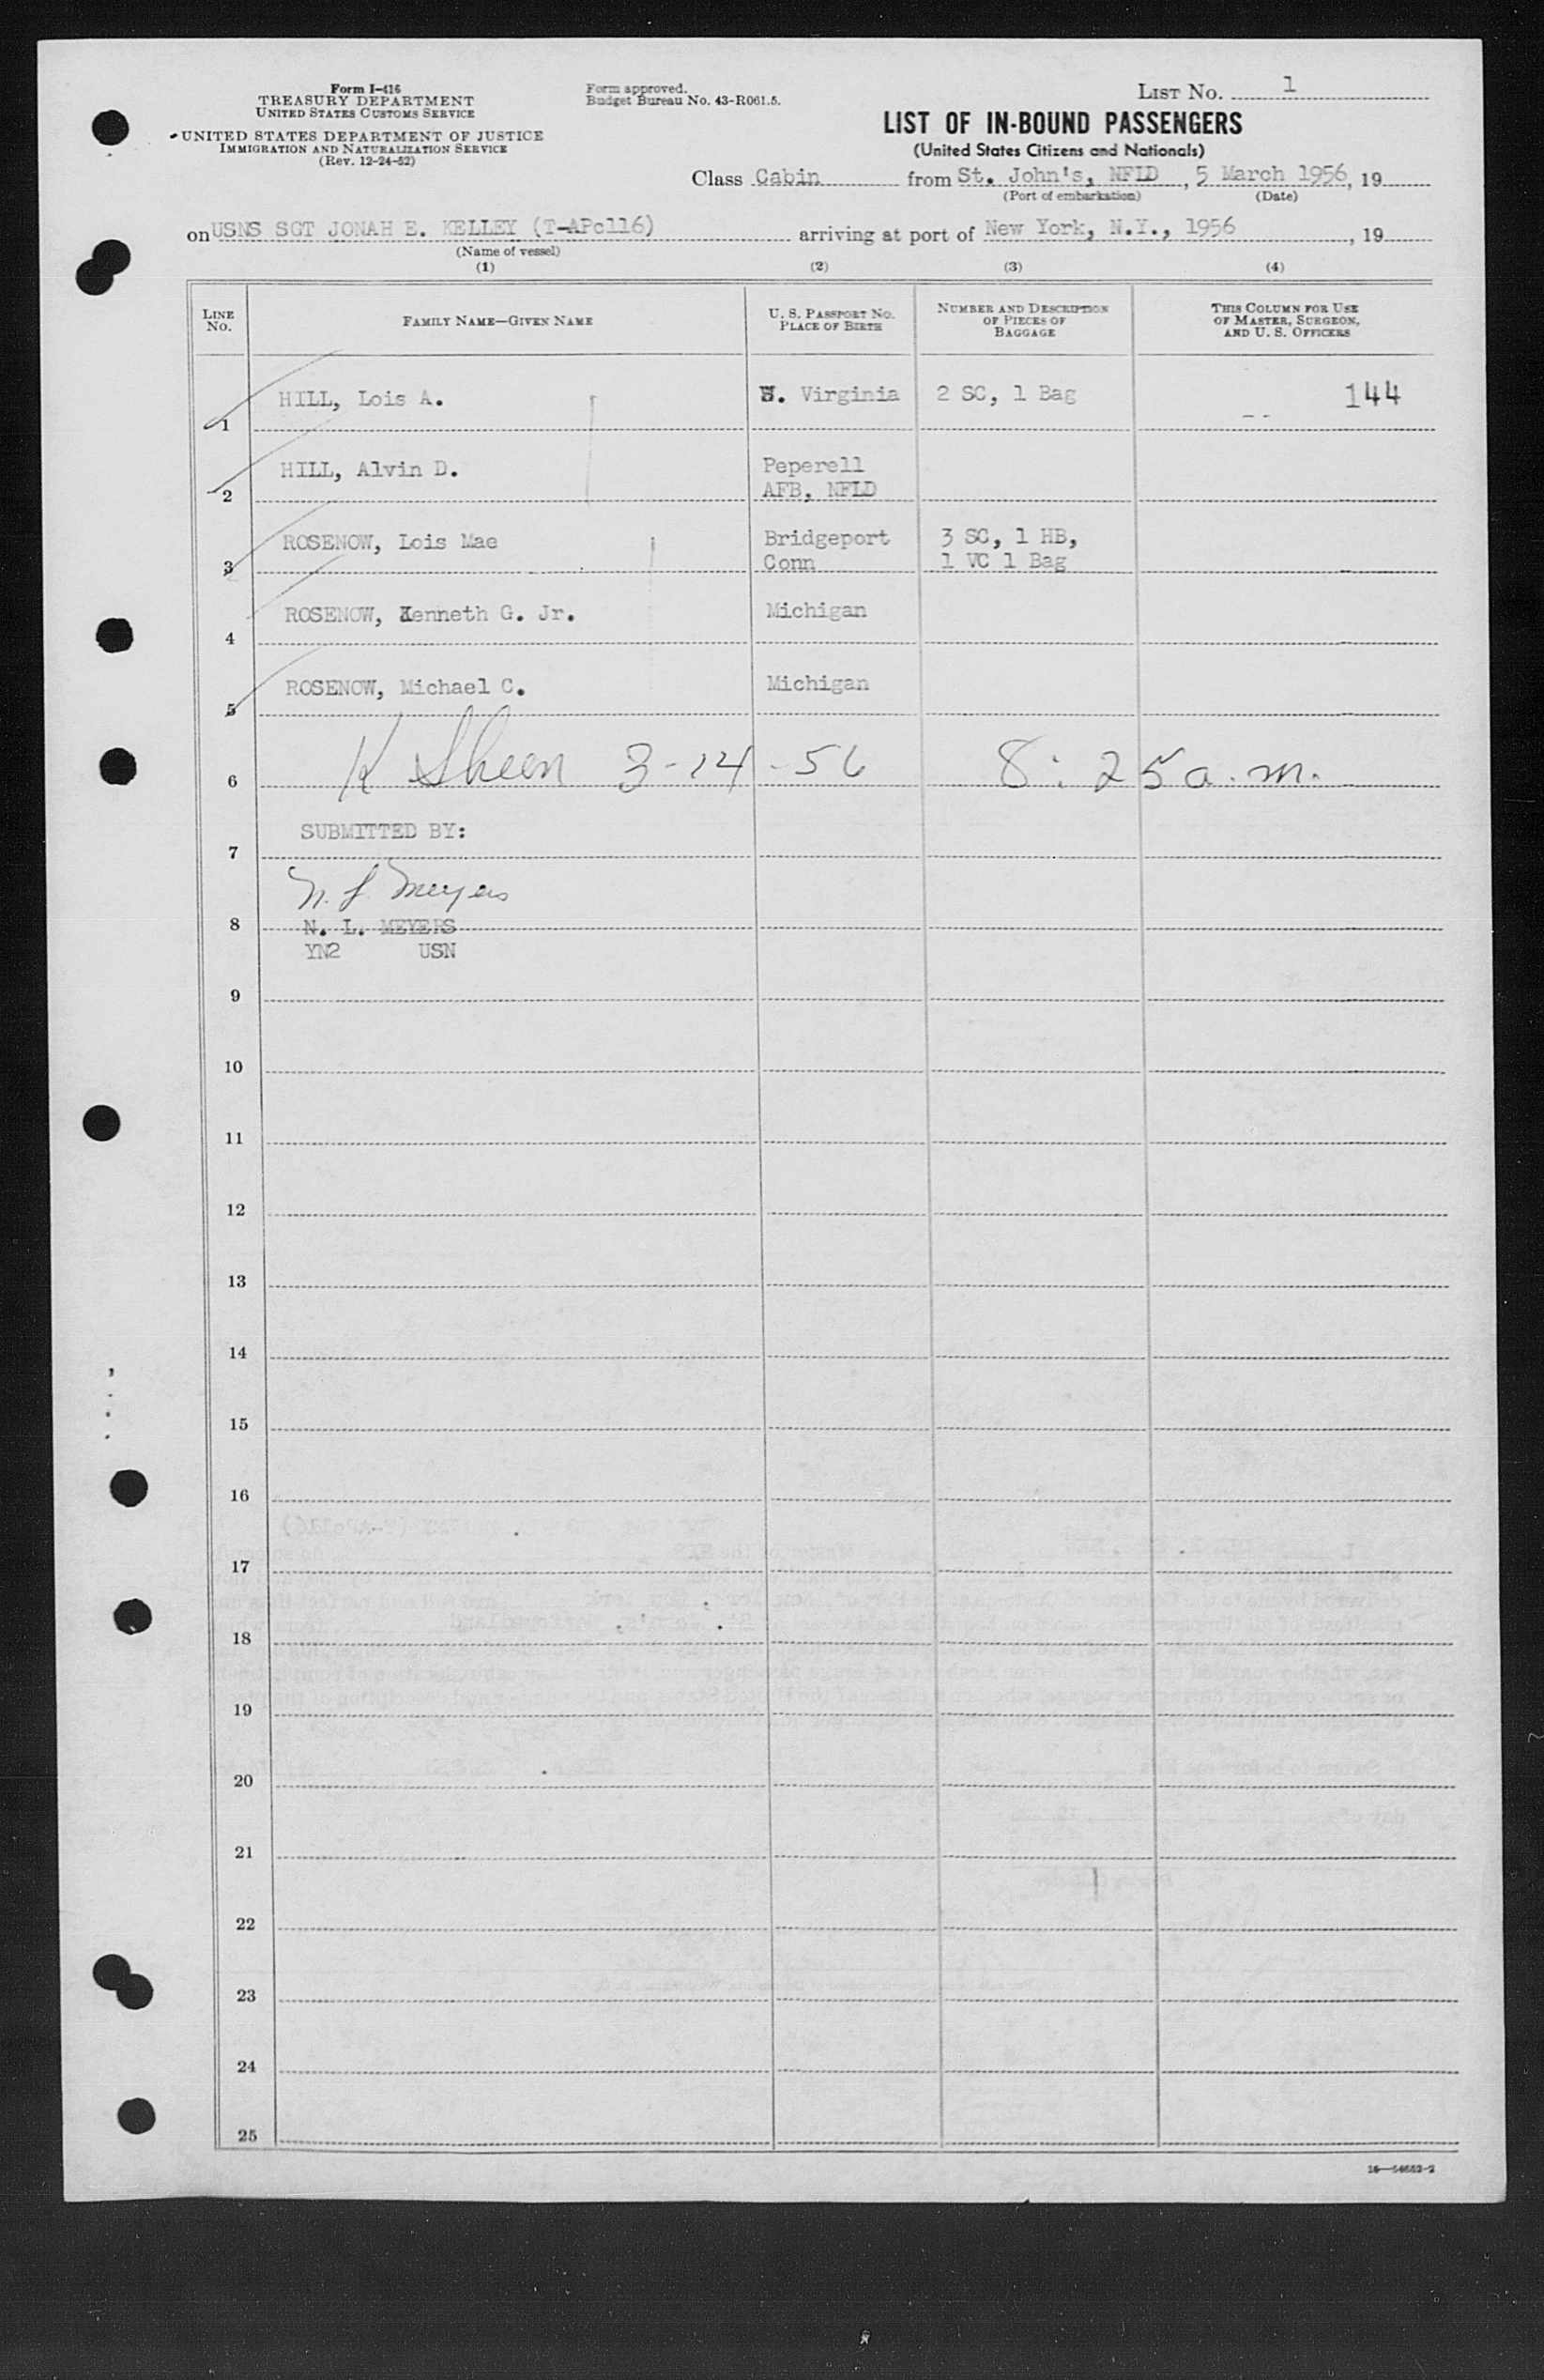 Form I-416
TREASURY DEPARTMENT
UNITED STATES CUSTOMS SERVICE
UNITED STATES DEPARTMENT OF JUSTICE
IMMIGRATION AND NATURALIZATION SERVICE
(Rev. 12-24-52)
Form approved.
Budget Bureau No. 43-R061.5.
LIST NO. 1
LIST OF IN-BOUND PASSENGERS
(United States Citizens and Nationals)
Class Cabin from St. John's, NFLD, 5 March 1956, 19
(Port of embarkation) (Date)
on USNS SGT JONAH E. KELLEY (T-APc116) arriving at port of New York, N.Y., 1956, 19
(Name of vessel)
(1) (2) (3) (4)
LINE NO.
FAMILY NAME—GIVEN NAME
U. S. PASSPORT NO.
PLACE OF BIRTH
NUMBER AND DESCRIPTION
OF PIECES OF
BAGGAGE
THIS COLUMN FOR USE
OF MASTER, SURGEON,
AND U. S. OFFICERS
1 HILL, Lois A. W. Virginia 2 SC, 1 Bag 144
2 HILL, Alvin D. Peperell
AFB, NFLD
3 ROSENOW, Lois Mae Bridgeport 3 SC, 1 HB,
Conn 1 VC 1 Bag
4 ROSENOW, Kenneth G. Jr. Michigan
5 ROSENOW, Michael C. Michigan
6 K Sheen 3-14-56 8:25 a.m.
7 SUBMITTED BY:
N. L. Meyers
8 N. L. MEYERS
YN2 USN
9
10
11
12
13
14
15
16
17
18
19
20
21
22
23
24
25